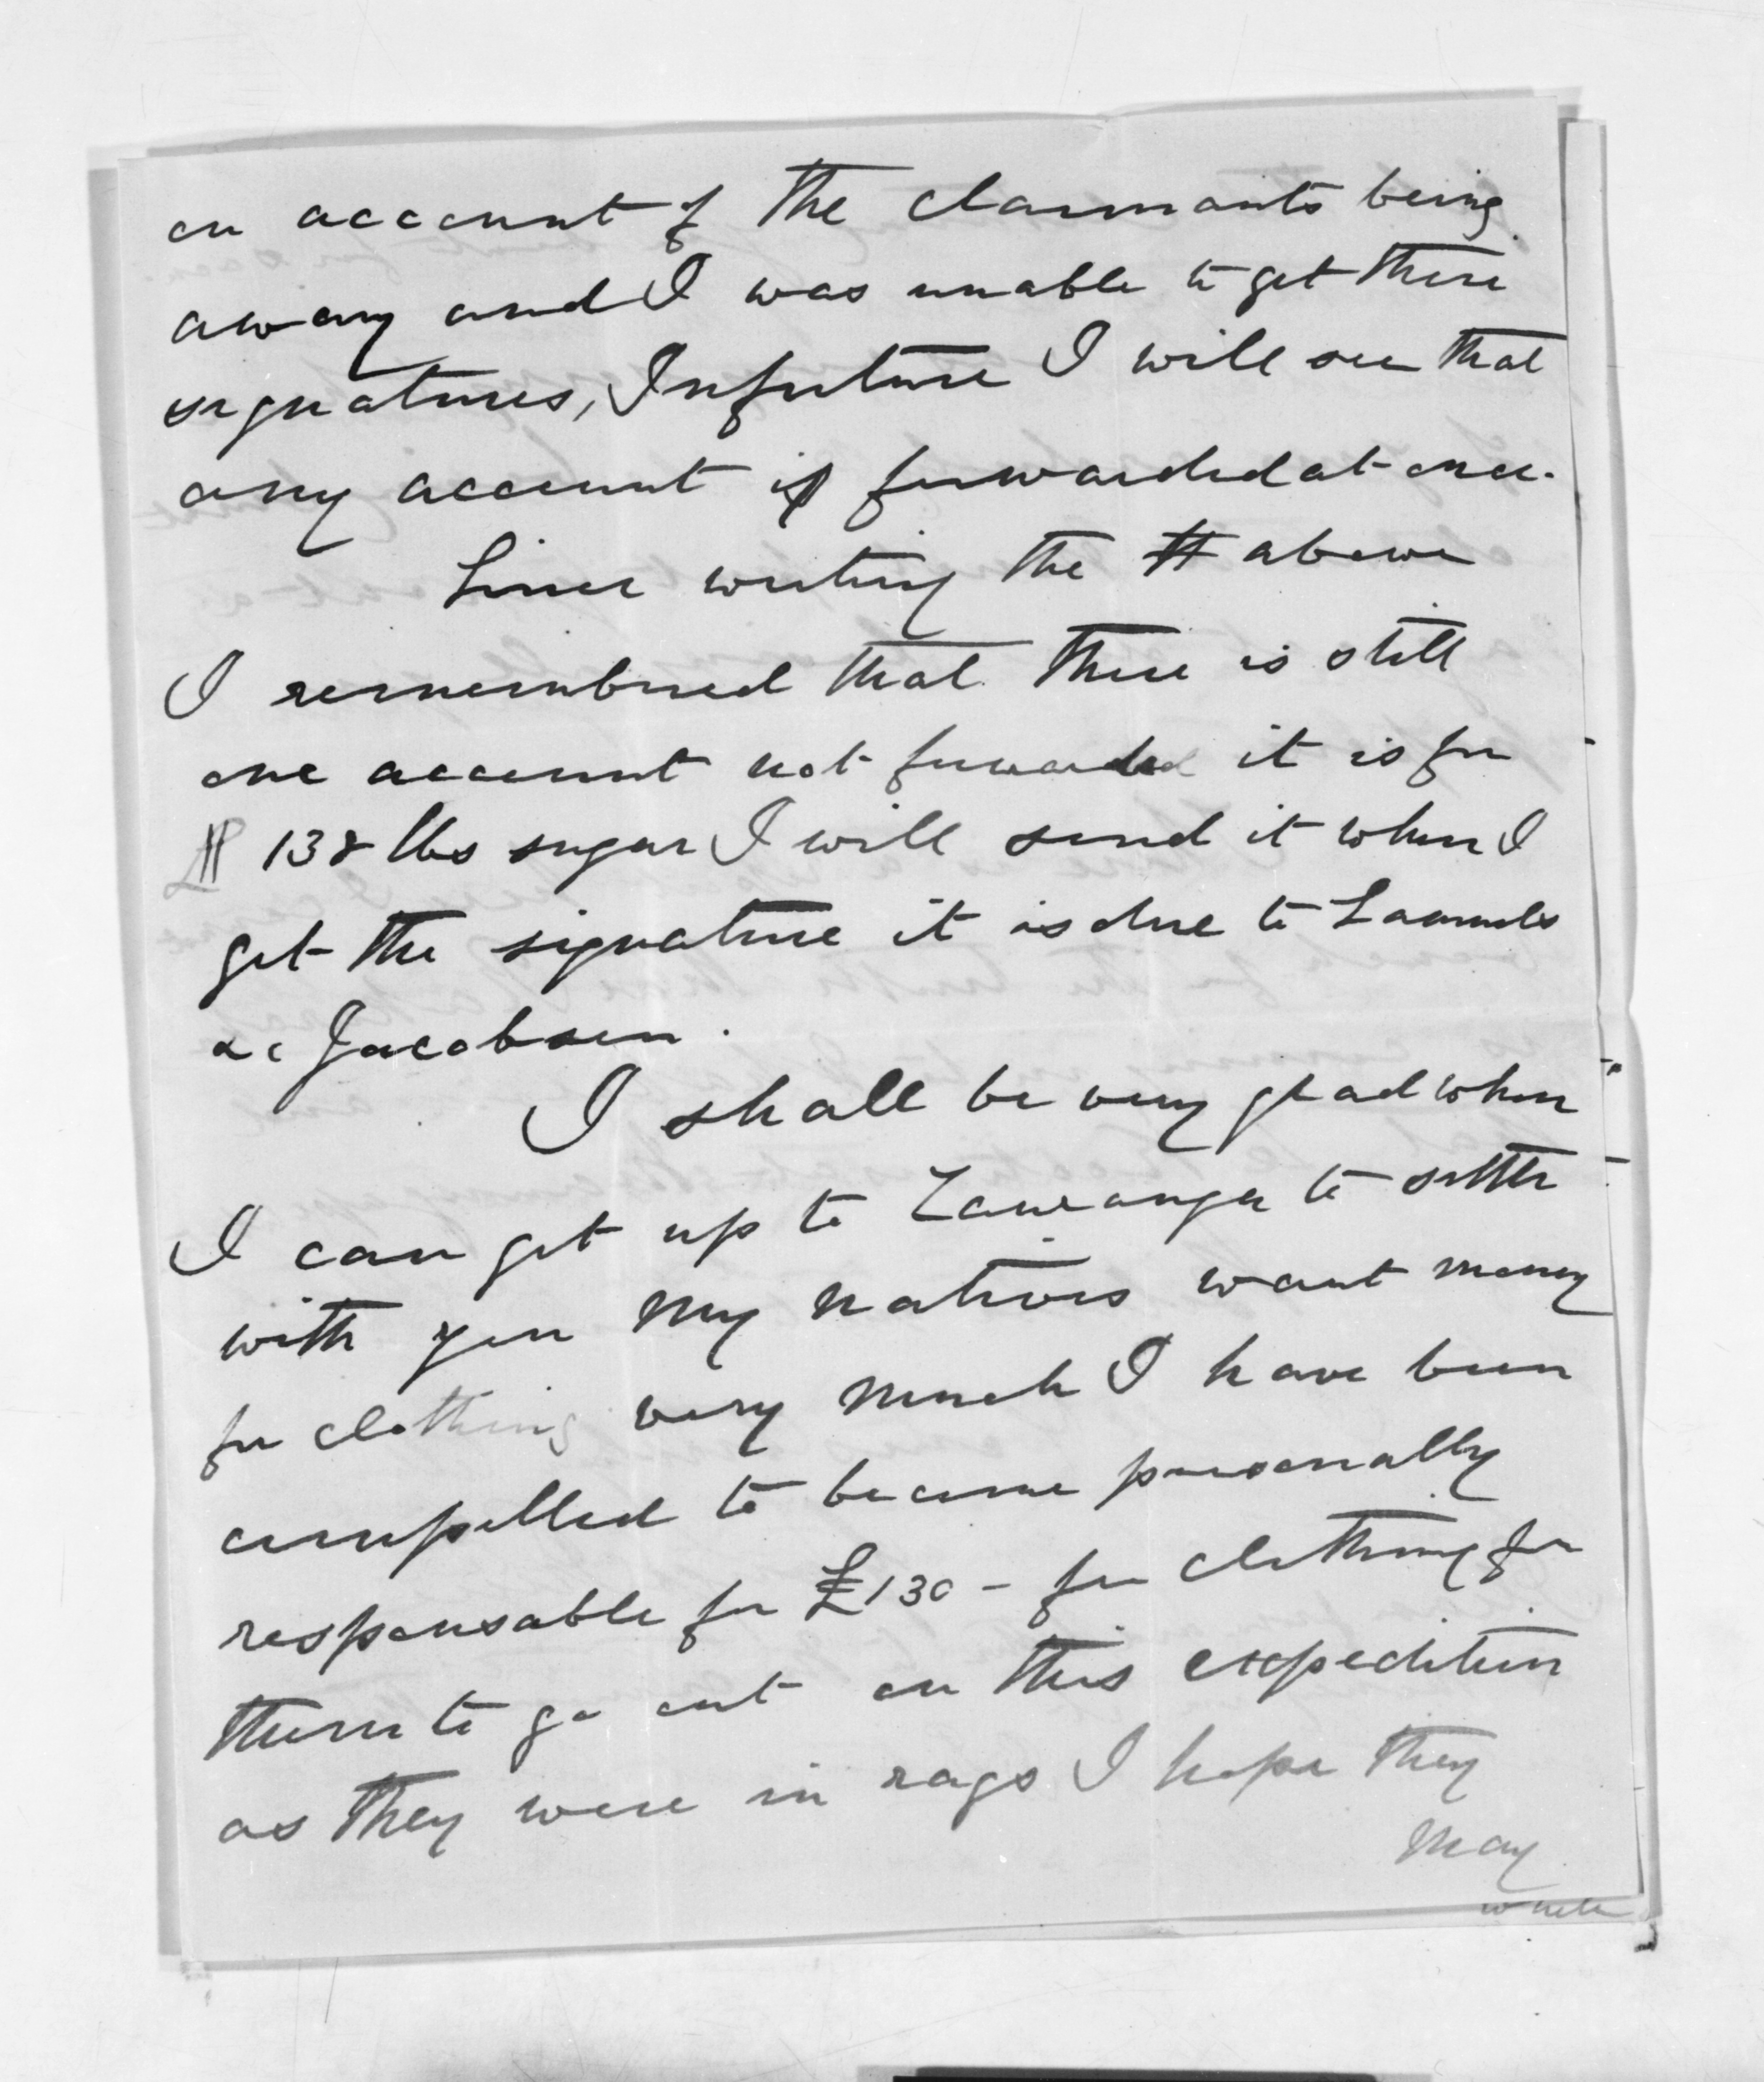 on account of the claimants being
away and I was unable to get there
signatures, In future I will see that
any account is forwarded at once.
Since writing the above
I remembered that there is still
one account not forwarded it is for
138 lbs sugar I will send it when I
get the signature it is due to
&c Jacobsen.
I shall be very glad when
I can get up to Tauranga to settle
with you My natives want money
for clothing very much I have been
compelled to become personally
responsable for £130 - for clothing for
them to go out on this expedition
as they were in rags I hope they
may